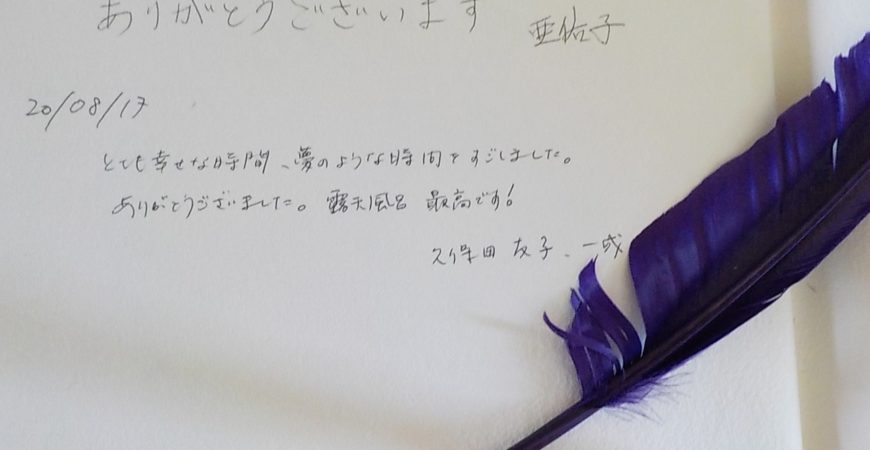 ありがとうございます
亜佑子
20/08/17
とても幸せな時間、夢のような時間をすごしました。
ありがとうございました。露天風呂 最高です!
久保田 友子、一成